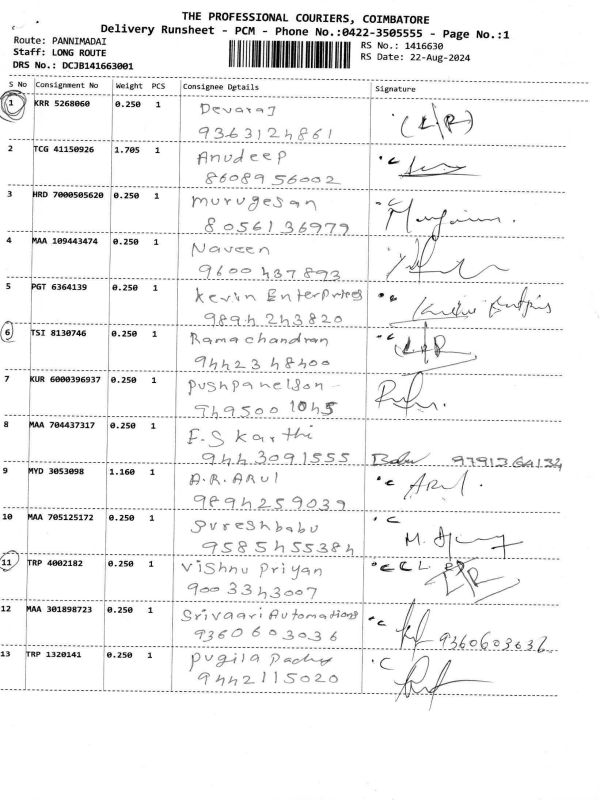 THE PROFESSIONAL COURIERS, COIMBATORE
Delivery Runsheet - PCM - Phone No.:0422-3505555 - Page No.:1
Route: PANNIMADAI
RS No.: 1416630
Staff: LONG ROUTE
RS Date: 22-Aug-2024
DRS No.: DCJB141663001
S No Consignment No Weight PCS Consignee Details Signature
1 KRR 5268060 0.250 1 Devaraj
9363124861 (L/R)
2 TCG 41150926 1.705 1 Anudeep
8608956002
3 HRD 7000505620 0.250 1 murugesan
8056136979
4 MAA 109443474 0.250 1 Naveen
9600437893
5 PGT 6364139 0.250 1 Kevin Enterprises
9894243820
6 TSI 8130746 0.250 1 Ramachandran
9442348400 L/R
7 KUR 6000396937 0.250 1 pushpanelson
9495001045
8 MAA 704437317 0.250 1 E.S karthi
9443091555
9 MYD 3053098 1.160 1 A.R.ARUl
9894259039 ARUl.
10 MAA 705125172 0.250 1 sureshbabu
9585455384
11 TRP 4002182 0.250 1 Vishnu Priyan
9003343007 L/R
12 MAA 301898723 0.250 1 Srivaari Automations
9360603036 9360603636
13 TRP 1320141 0.250 1 pugila
9442115020